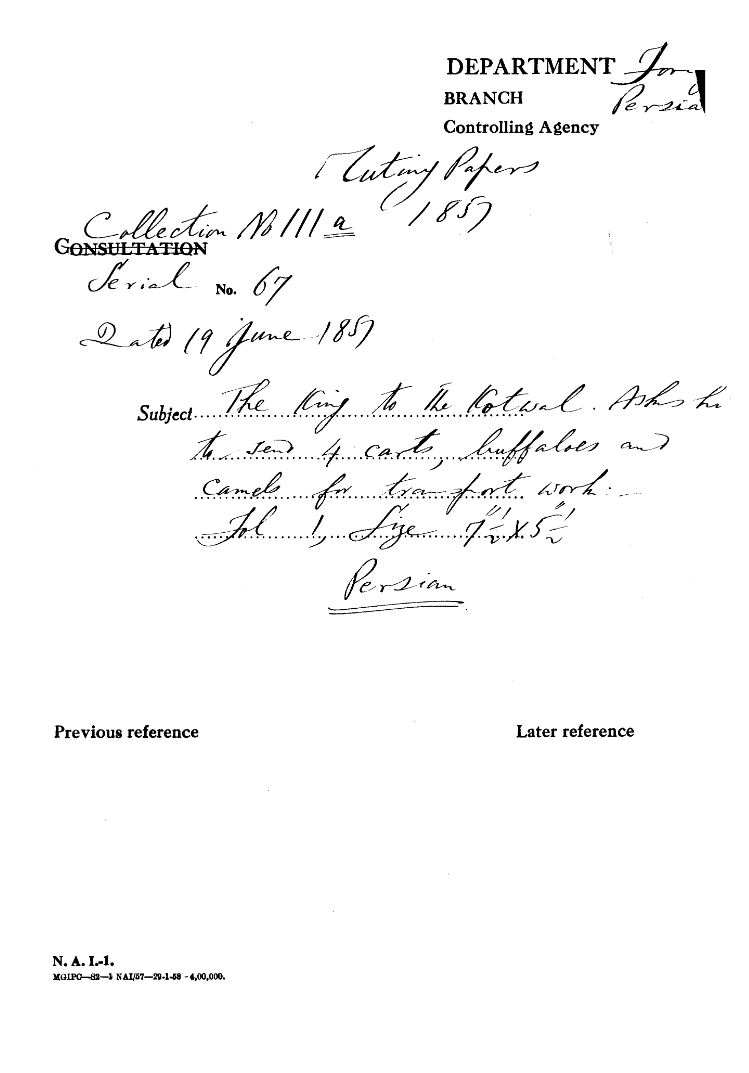 DEPARTMENT For
BRANCH Persia
Controlling Agency
Mutiny Papers
1857
Collection No 111 a
CONSULTATION
Serial No. 67
Dated 19 June 1857
Subject The King to the Kotwal. Asks hi
to send 4 carts, buffaloes and
camels for transport work.
Fol 1, Size 7½" x 5½"
Persian
Previous reference Later reference
N. A. I.-1.
MGIPC—S2—3 NAI/57—29-1-58 - 4,00,000.